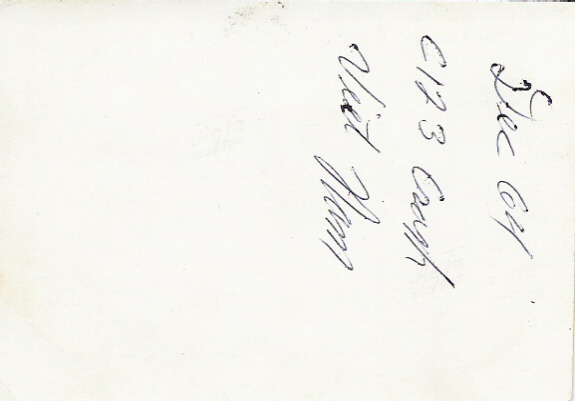 Dec 64
C123 Crash
Viet Nam